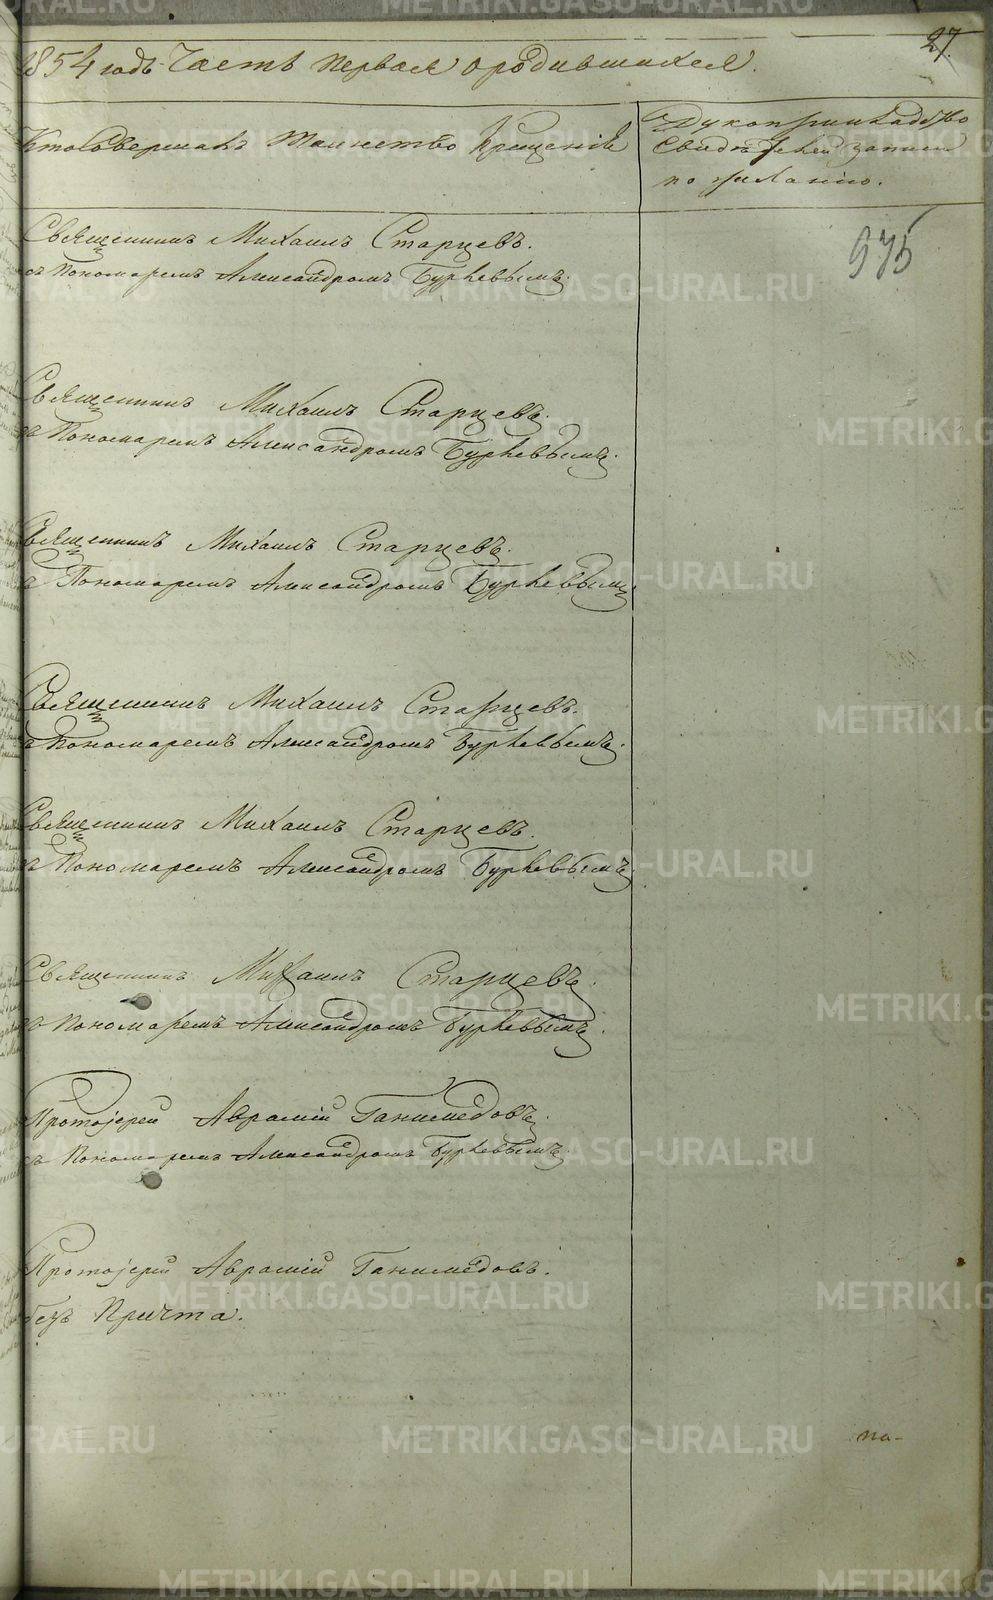 27
1854 годъ Часть Первая о родившихся.
Кто совершалъ Таинство Крещенія
Рукоприкладство
Свидѣтелей записи
по желанію.
975
Священникъ Михаилъ Старцевъ.
съ Пономаремъ Александромъ
Священникъ Михаилъ Старцевъ.
съ Пономаремъ Александромъ
Священникъ Михаилъ Старцевъ.
съ Пономаремъ Александромъ
Священникъ Михаилъ Старцевъ.
съ Пономаремъ Александромъ
Священникъ Михаилъ Старцевъ.
съ Пономаремъ Александромъ
Священникъ Михаилъ Старцевъ.
съ Пономаремъ Александромъ
Протоіерей Аврамій Ганимедовъ.
съ Пономаремъ Александромъ
Протоіерей Аврамій Ганимедовъ.
безъ Причта.
по-
METRIKI.GASO-URAL.RU